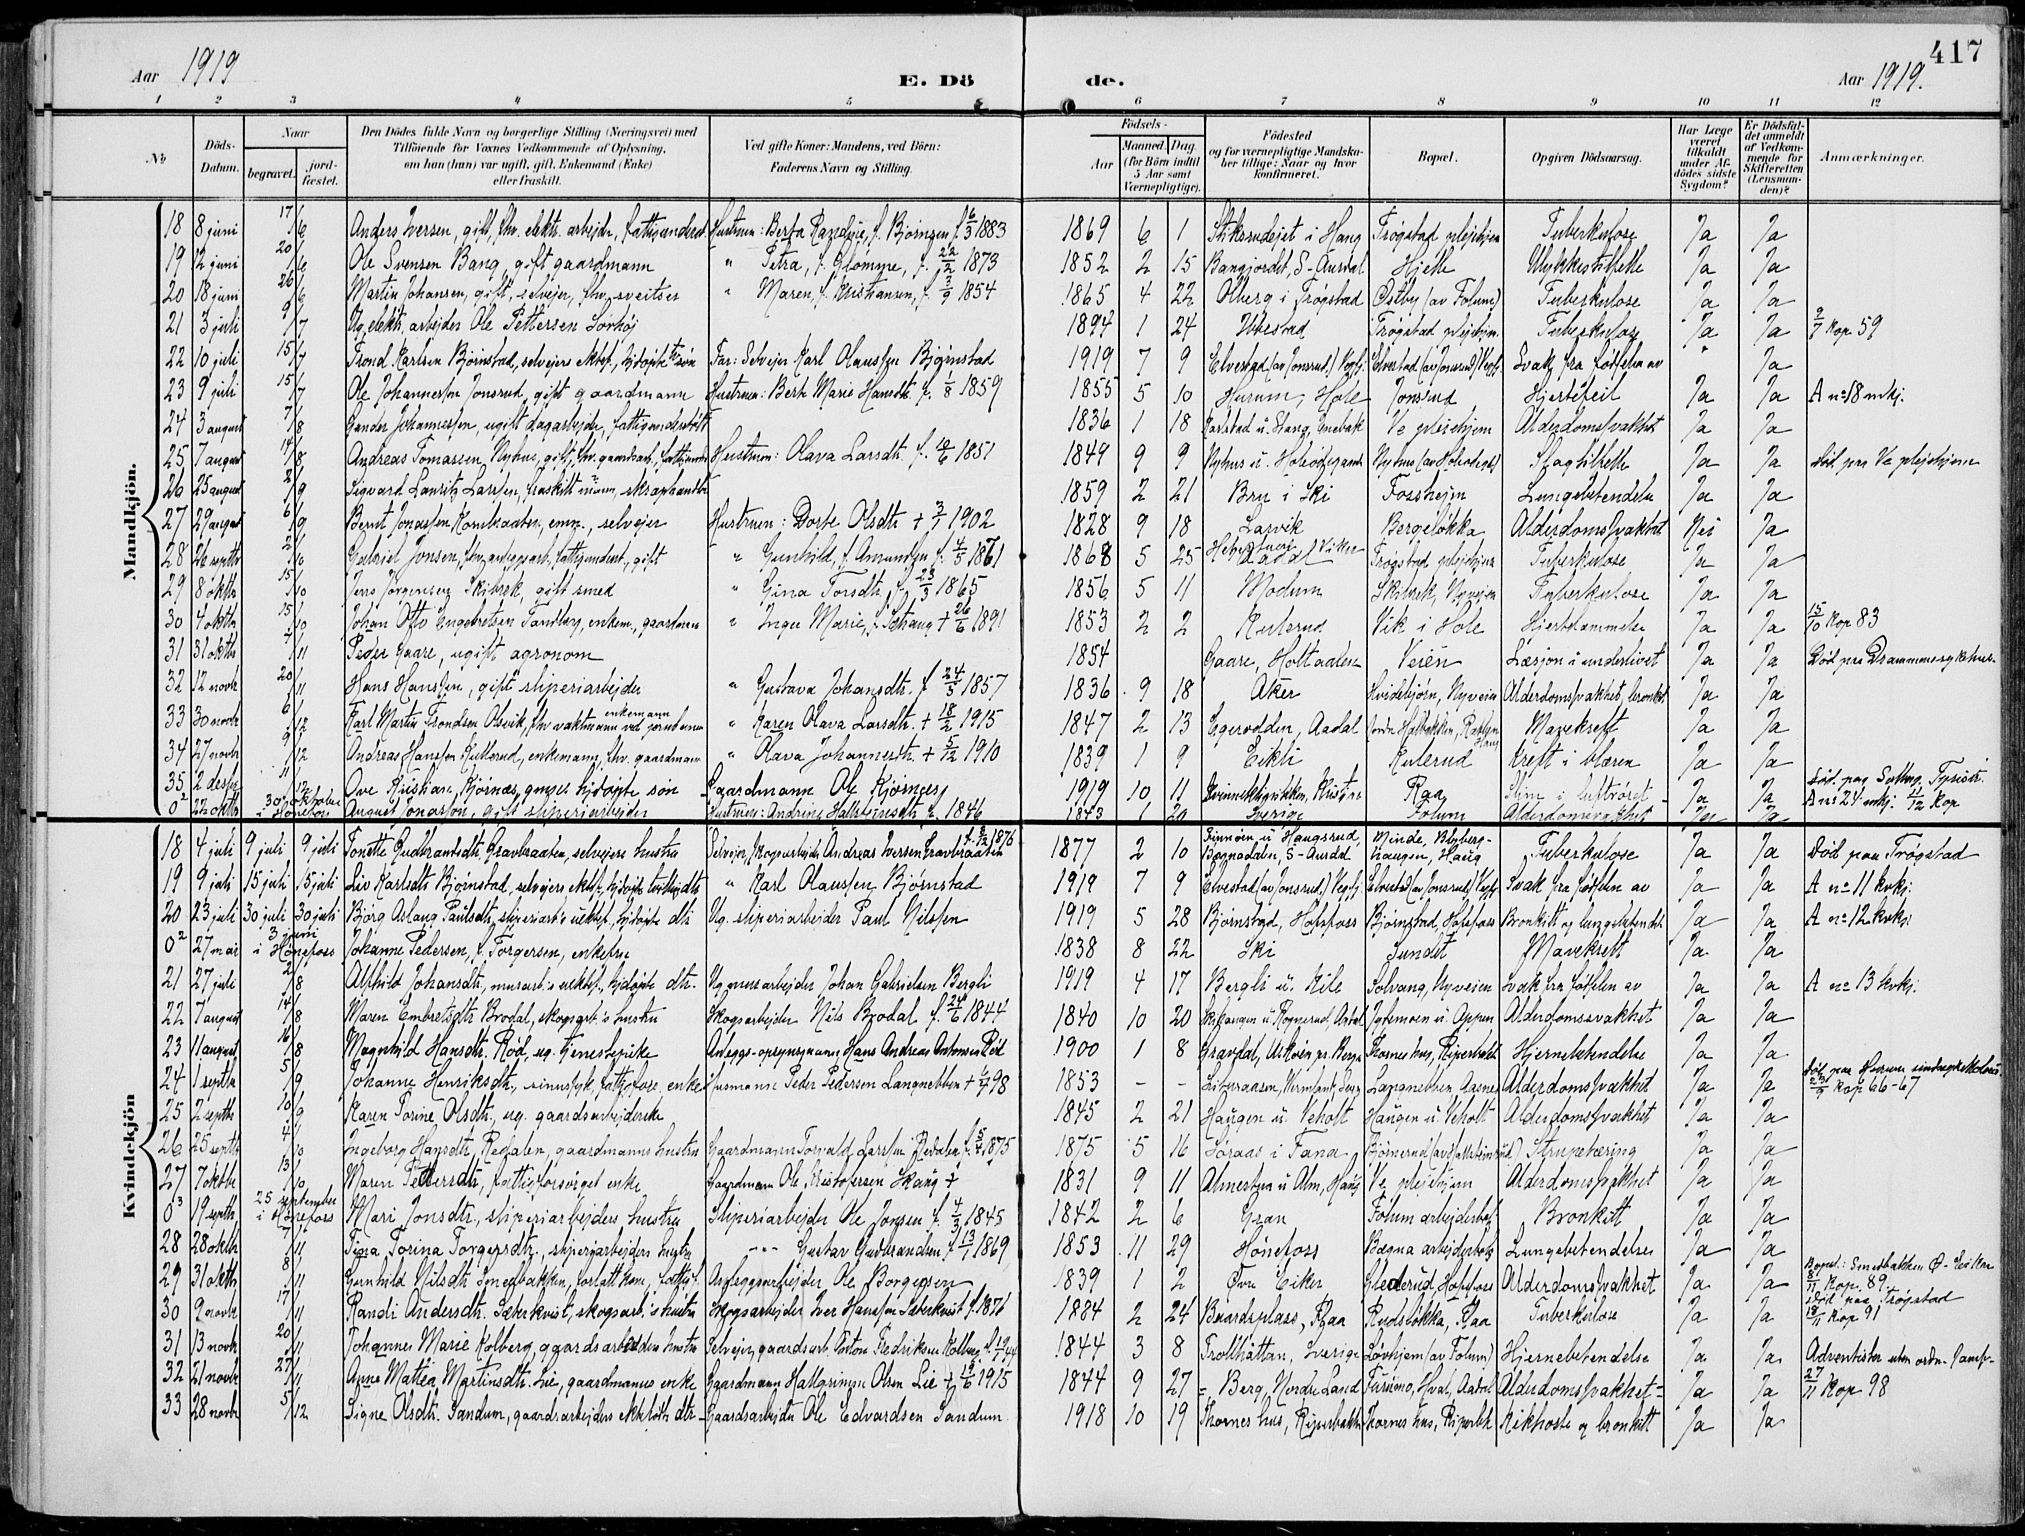 417
Aar 1919 E. Dö de. Aar 1919.
1 2 3 4 5 6 7 8 9 10 11 12
No
Döds-Datum.
Naar begravet. jord-fæstet.
Den Dödes fulde Navn og borgerlige Stilling (Næringsvei) med Tilföiende for Voxnes Vedkommende af Oplysning, om han (hun) var ugift, gift, Enkemand (Enke) eller fraskilt.
Ved gifte Koner: Mandens, ved Börn: Faderens Navn og Stilling.
Födsels- Aar Maaned. Dag. (for Börn indtil 5 Aar samt Værnepligtige).
Födested og for værnepligtige Mandskaber tillige: Naar og hvor konfirmeret.
Bopæl.
Opgiven Dödsaarsag.
Har Læge været tilkaldt under Afdödes sidste Sygdom?
Er Dödsfaldet anmeldt af Vedkommende for Skifteretten (Lensmanden)?
Anmærkninger.
Mandkjön.
18 8 juni 17/6 Anders Iversen, gift, fhv. elektr. arbejder, fattigunderst. Hustrun: Berta Randine, f. Björnsen f. 6/3 1883 1869 6 1 Stiksrudejet i Haug Trøgstad plejehjem Tuberkulose Ja Ja
19 12 juni 20/6 Ole Svensen Bang, gift gaardmann " Petra, f. Glomme, f. 22/2 1873 1852 2 15 Bangjordet, S-Aurdal Hjelle Ulykkestilfelle Ja Ja
20 18 juni 26/6 Martin Johansen, gift, selvejer, fhv. sveitser " Maren, f. Kristiansen, f. 3/9 1854 1865 4 22 Ølberg i Trøgstad Østby (av Folum) Tuberkulose Ja Ja
21 3 juli 9/7 Ug. elektr. arbejder Ole Pettersen Sørhøj 1894 1 24 Ibbestad Trøgstad plejehjem Tuberkulose Ja Ja 9/7 Kop. 59
22 10 juli 15/7 Trond Karlsen Bjørnstad, selvejers ektef., hjdøpte søn Far: Selvejer Karl Olaussen Bjørnstad 1919 7 9 Elvestad (av Jonsrud) Vegf. Elvestad (av Jonsrud) Vegf. Svak fra fødselen av " Ja
23 9 juli 15/7 Ole Johannessen Jonsrud, gift gaardmann Hustrun: Berte Marie Hansdtr. f. 1/8 1859 1855 5 10 Hurum, Hole Jonsrud Hjertefeil Ja Ja A no 18 mkj.
24 3 august 7/8 Gunder Johannessen, ugift dagarbejder, fattigunderstøtt. 1836 1 18 Karlstad u. Stang, Enebak Ve plejehjem Alderdomssvakhet Ja Ja
25 7 august 14/8 Andreas Tomassen Nyhus, gift, fhv. gaardsarb., fattigunderst. Hustrun: Olava Larsdtr. f. 10/6 1851 1849 9 9 Nyhus u. Nyhus Slagtilfelle Ja Ja Død paa Ve plejehjem
26 25 august 2/9 Sigvard Lauritz Larssen, fraskilt mann, skraphandler 1859 2 21 Bru i Ski Fossheim Lungebetendelse Ja Ja
27 29 august 6/9 Bernt Jonassen Konikaaten, enm., selvejer Hustrun: Dorte Olsdtr + 3/1 1902 1828 9 18 Larvik Bergeløkka Alderdomssvakhet Nei Ja
28 26 septbr 2/10 Gabriel Jonsen, fhv. anleggsarb., fattigunderst., gift " Gunhild, f. Amundsen f. 4/5 1871 1868 5 25 Viker Aadal Trøgstad plejehjem Tuberkulose Ja Ja
29 8 oktbr 15/10 Jens Jørgensen Skibrek, gift smed " Gina Torsdtr. f. 23/3 1865 1856 5 11 Modum Skibrek, Nyveien Tuberkulose Ja Ja
30 4 oktbr 15/10 Johan Otto Engebretsen Tandberg, enkem., gaardmann " Inga Marie, f. Schaug + 26/6 1891 1853 2 2 Kulerud Vik i Hole Hjertelammelse Ja Ja 15/10 Kop 83
31 31 oktbr 4/11 Peder Gaare, ugift agronom 1854 Gaare, Holtaalen Veien Læsjon i underlivet Ja Ja Død paa Drammens sykehus.
32 12 novbr 20/11 Hans Hanssen, gift sliperiarbejder " Gustava Johansdtr. f. 24/5 1857 1836 9 18 Aker Hvidebjørn, Nyveien Alderdomssvakhet, bronkit. Ja Ja
33 30 novbr 6/12 Karl Martin Trondsen Olsvik, fhv. vaktmann ved jernbanen enkemann " Karen Olava Larsdtr. + 18/2 1915 1847 2 13 Egerodden, Aadal Mavekreft Ja Ja
34 27 novbr 9/12 Andreas Hanssen Kullerud, enkemann, fhv. gaardmann " Olava Johannesdtr + 5/12 1910 1839 1 9 Eikli Kulerud Kreft i blæren Ja Ja
35 2 desbr 11/12 Ove Kristian Kjørnæs, gmgs hjdøpte søn Gaardmann Ole Kjørnæs 1919 10 11 Kvinneklinikken, Kristiania Raa Slim i luftrøret Ja Ja A no 24 mkj. 11/12 Kop
0² 22 oktbr 30 oktober i Hønefoss August Jonasson, gift sliperiarbejder Hustrun: Andrine Hallstensdtr f. 1846 1843 1 20 Sverige Folum Alderdomssvakhet Ja Ja
Kvindekjön
18 4 juli 9 juli 9 juli Tonette Gudbrandsdtr Gravbraaten, selvejers hustru Selvejer, skogsarbejder Andreas Iversen Gravbraaten f. 1876 1877 2 10 Finnøen u Haugsrud, Bægnadalen, S-Aurdal Minde, Blyberghaugen, Haug Tuberkulose Ja Ja Død paa Trøgstad
19 9 juli 15 juli 15 juli Liv Karlsdtr Bjørnstad, selvejers ektef., hjdøpte tvillingdtr " Karl Olaussen Bjørnstad 1919 7 9 Elvestad (av Jonsrud) Vegf. Elvestad (av Jonsrud) Vegf. Svak fra fødselen av Ja Ja A no 11 kvkj.
20 23 juli 30 juli 30 juli Bjørg Aslaug Paulsdtr, sliperiarb.s uektef., hjdøpte dtr Ug. sliperiarbejder Paul Nilssen 1919 5 28 Bjørnstad, Hofsfoss Bjørnstad, Hofsfoss Bronkitt og lungebetendelse Ja Ja A no 12 kvkj.
0² 27 mai 3 juni i Hønefoss Johanne Pedersen, f. Torgersen, enkefru 1838 8 22 Ski Sundet Mavekreft Ja Ja
21 27 juli 2/8 Alfhild Johansdtr, murarb.s uektef., hjdøpte dtr. Ug murarbejder Johan Gabrielsen Bergli 1919 4 17 Bergli u. Kile Solvang, Nyveien Svak fra fødselen av Ja Ja A no 13 kvkj.
22 7 august 14/8 Maren Embretsdtr Brodal, skogsarb.s hustru Skogsarbejder Nils Brodal f. 24/6 1844 1840 10 20 Skihaugen u Rognerud, Aadal Jytemoen u. Oppen Alderdomssvakhet Ja Ja
23 11 august 16/8 Magnhild Hansdtr. Rød, ug. tjenestepike Anleggs-opsynsmann Hans Andreas Antonsen Rød 1900 1 8 Gravdal, Askøen pr. Bergen Thornes hus, Riperbakken Hjernebetendelse Ja Ja
24 1 septbr 5/9 Johanne Henriksdtr, sinnssyk, fattiglose, enke Husmann Peder Pedersen Langnebben + 98 1853 - - Liberaasen, Vermland, Langnebben, Aasne Alderdomssvakhet Ja Ja Kop 66-67
25 2 septbr 10/9 Karen Torine Olsdtr, ug. gaardsarbejderske 1845 2 21 Haugen u. Veholt Haugen u. Veholt Alderdomssvakhet Ja Ja
26 25 septbr 4/10 Ingeborg Hansdtr, Redalen, gaardmanns hustru Gaardmann Torvald Larssen Redalen f. 1875 1875 5 16 Søraas i Fana Bjørnerud Strupetæring Ja Ja
27 7 oktbr 13/10 Maren Pettersdtr, fattigforsørget enke Gaardmann Ole Kristofersen Skaug + 1831 9 11 Almestuen u Alm, Haug Ve plejehjem Alderdomssvakhet Ja Ja
0³ 19 septbr 25 september i Hønefoss Mari Jonsdtr, sliperiarbejders hustru Sliperiarbejder Ole Jonsen f. 4/3 1845 1842 2 6 Gran Folum arbejderbol. Bronkitt Ja Ja
28 28 oktbr 7/11 Tina Torina Torgersdtr., sliperiarbejders hustru " " Gustav Gudbrandsen f. 13/1 1869 1853 11 29 Hønefoss Bægna arbejderbolig Lungebetendelse Ja Ja
29 31 oktbr 8/11 Gunhild Nilsdtr Smedbakken, forlatt kone, fattigf. Anleggsarbejder Ole Borgersen 1839 1 2 Øvre Eiker Glederud, Hofsfoss Alderdomssvakhet Ja Ja Bopæl: Smedbakken Ø-Eiker 8/11 Kop. 89
30 9 novbr 17/11 Randi Andersdtr. Sæterkvist, skogsarb.s hustru Skogsarbejder Iver Hanssen Sæterkvist f. 1876 1884 2 24 Baardsplass, Raa Rudsløkka, Raa Tuberkulose Ja Ja Død paa Trøgstad 18/11 Kop 91
31 13 novbr 20/11 Johannes Marie Kolberg, gaardsarbeiders hustru Selvejer, gaardsarb. Anton Fredriksen Kolberg f. 1844 1844 3 8 Trollhättan, Sverige Løvhjem (av Folum) Hjernebetendelse Ja Ja Adventister uten ordn. samf.
32 21 novbr 27/11 Anne Mathea Martinsdtr. Lie, gaardmanns enke Gaardmann Hallgrimsen Olsen Lie + 19/6 1915 1844 9 27 Berg, Nordre Land Furumo, Hval, Aadal Alderdomssvakhet Ja Ja 27/11 Kop 98
33 28 novbr 5/12 Signe Olsdtr. Sandum, gaardsarbejders ektefødte dtr Gaardsarbejder Ole Edvardsen Sandum 1918 10 19 Thornes hus, Riperbakken Thornes hus, Riperbk Kikhoste og bronkitt Ja Ja